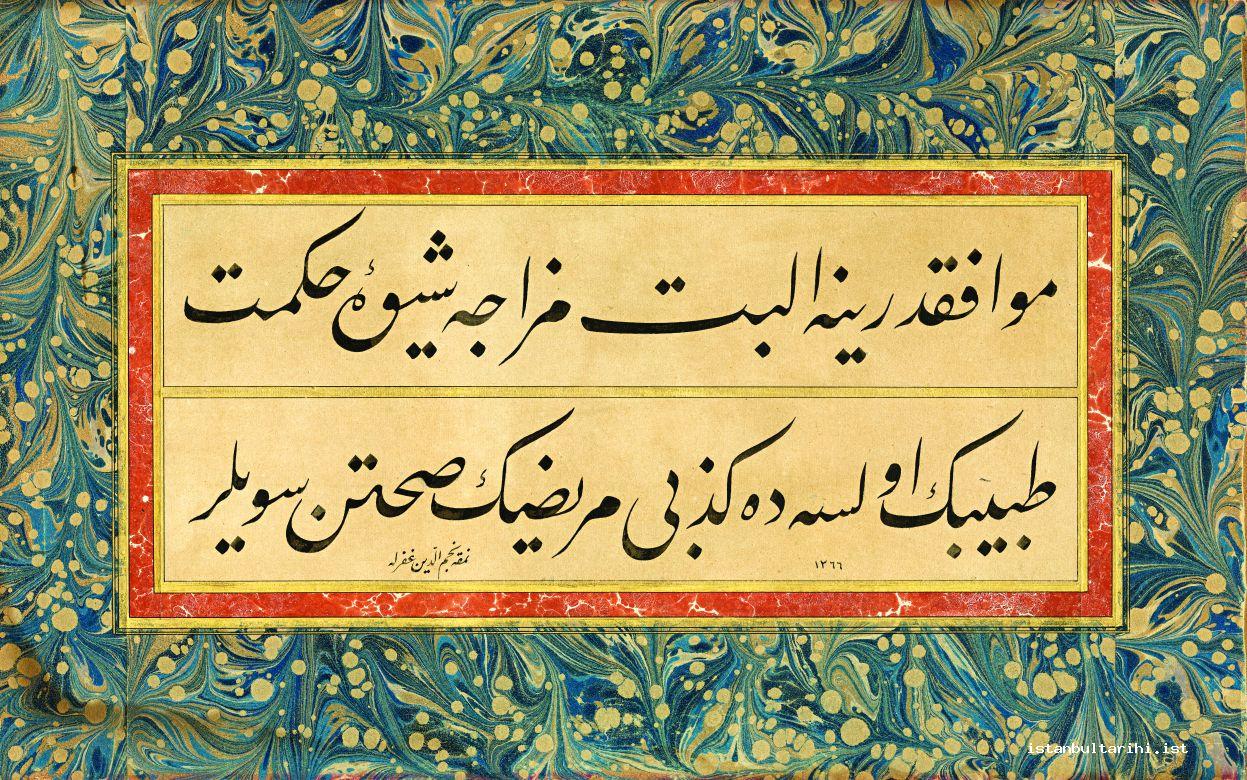 موافقدر ینه البت مزاجه شیوهٔ حکمت
طبیبك اولسه ده كذبی مریضك صحتن سویلر
نمقه نجم الدین غفرله
١٣٦٦
istanbultarihi.ist